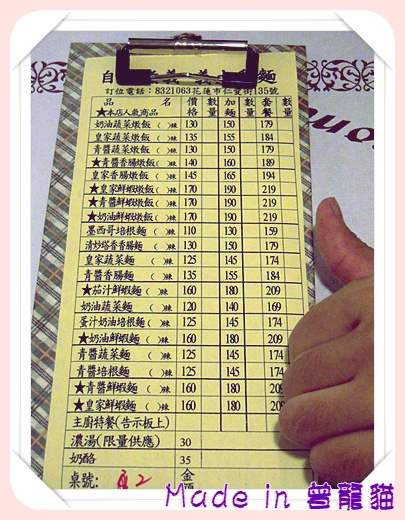 自 義 義大利麵
訂位電話：8321063花蓮市仁愛街135號
品 名 價格 數量 加麵 數量 套餐 數量
★本店人氣商品
奶油蔬菜燉飯( )辣 130 150 179
皇家蔬菜燉飯( )辣 135 155 184
青醬蔬菜燉飯( )辣 130 150 179
★青醬香腸燉飯( )辣 140 160 189
皇家香腸燉飯( )辣 145 165 194
★皇家鮮蝦燉飯( )辣 170 190 219
★青醬鮮蝦燉飯( )辣 170 190 219
★奶油鮮蝦燉飯( )辣 170 190 219
墨西哥培根麵( )辣 110 130 159
清炒塔香香腸麵( )辣 130 150 179
皇家蔬菜麵 ( )辣 125 145 174
青醬香腸麵 ( )辣 135 155 184
★茄汁鮮蝦麵( )辣 160 180 209
奶油蔬菜麵 ( )辣 120 140 169
蛋汁奶油培根麵( )辣 125 145 174
★奶油鮮蝦麵( )辣 160 180 209
青醬蔬菜麵 ( )辣 125 145 174
青醬培根麵 ( )辣 125 145 174
★青醬鮮蝦麵( )辣 160 180 209
★皇家鮮蝦麵( )辣 160 180
主廚特餐(告示板上)
濃湯(限量供應) 30
奶酪 35
桌號: 2 金
Made in 曾龍貓